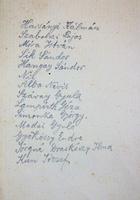 Harsányi Kálmán
Szabolcsi Lajos
Móra István
Sík Sándor
Hangay Sándor
Nil
Alba Nevis
Szávay Gyula
Lampérth Géza
Zmonka György
Madai Gyula
Gyökössy Endre
Draskóczy Ilma
Kún József